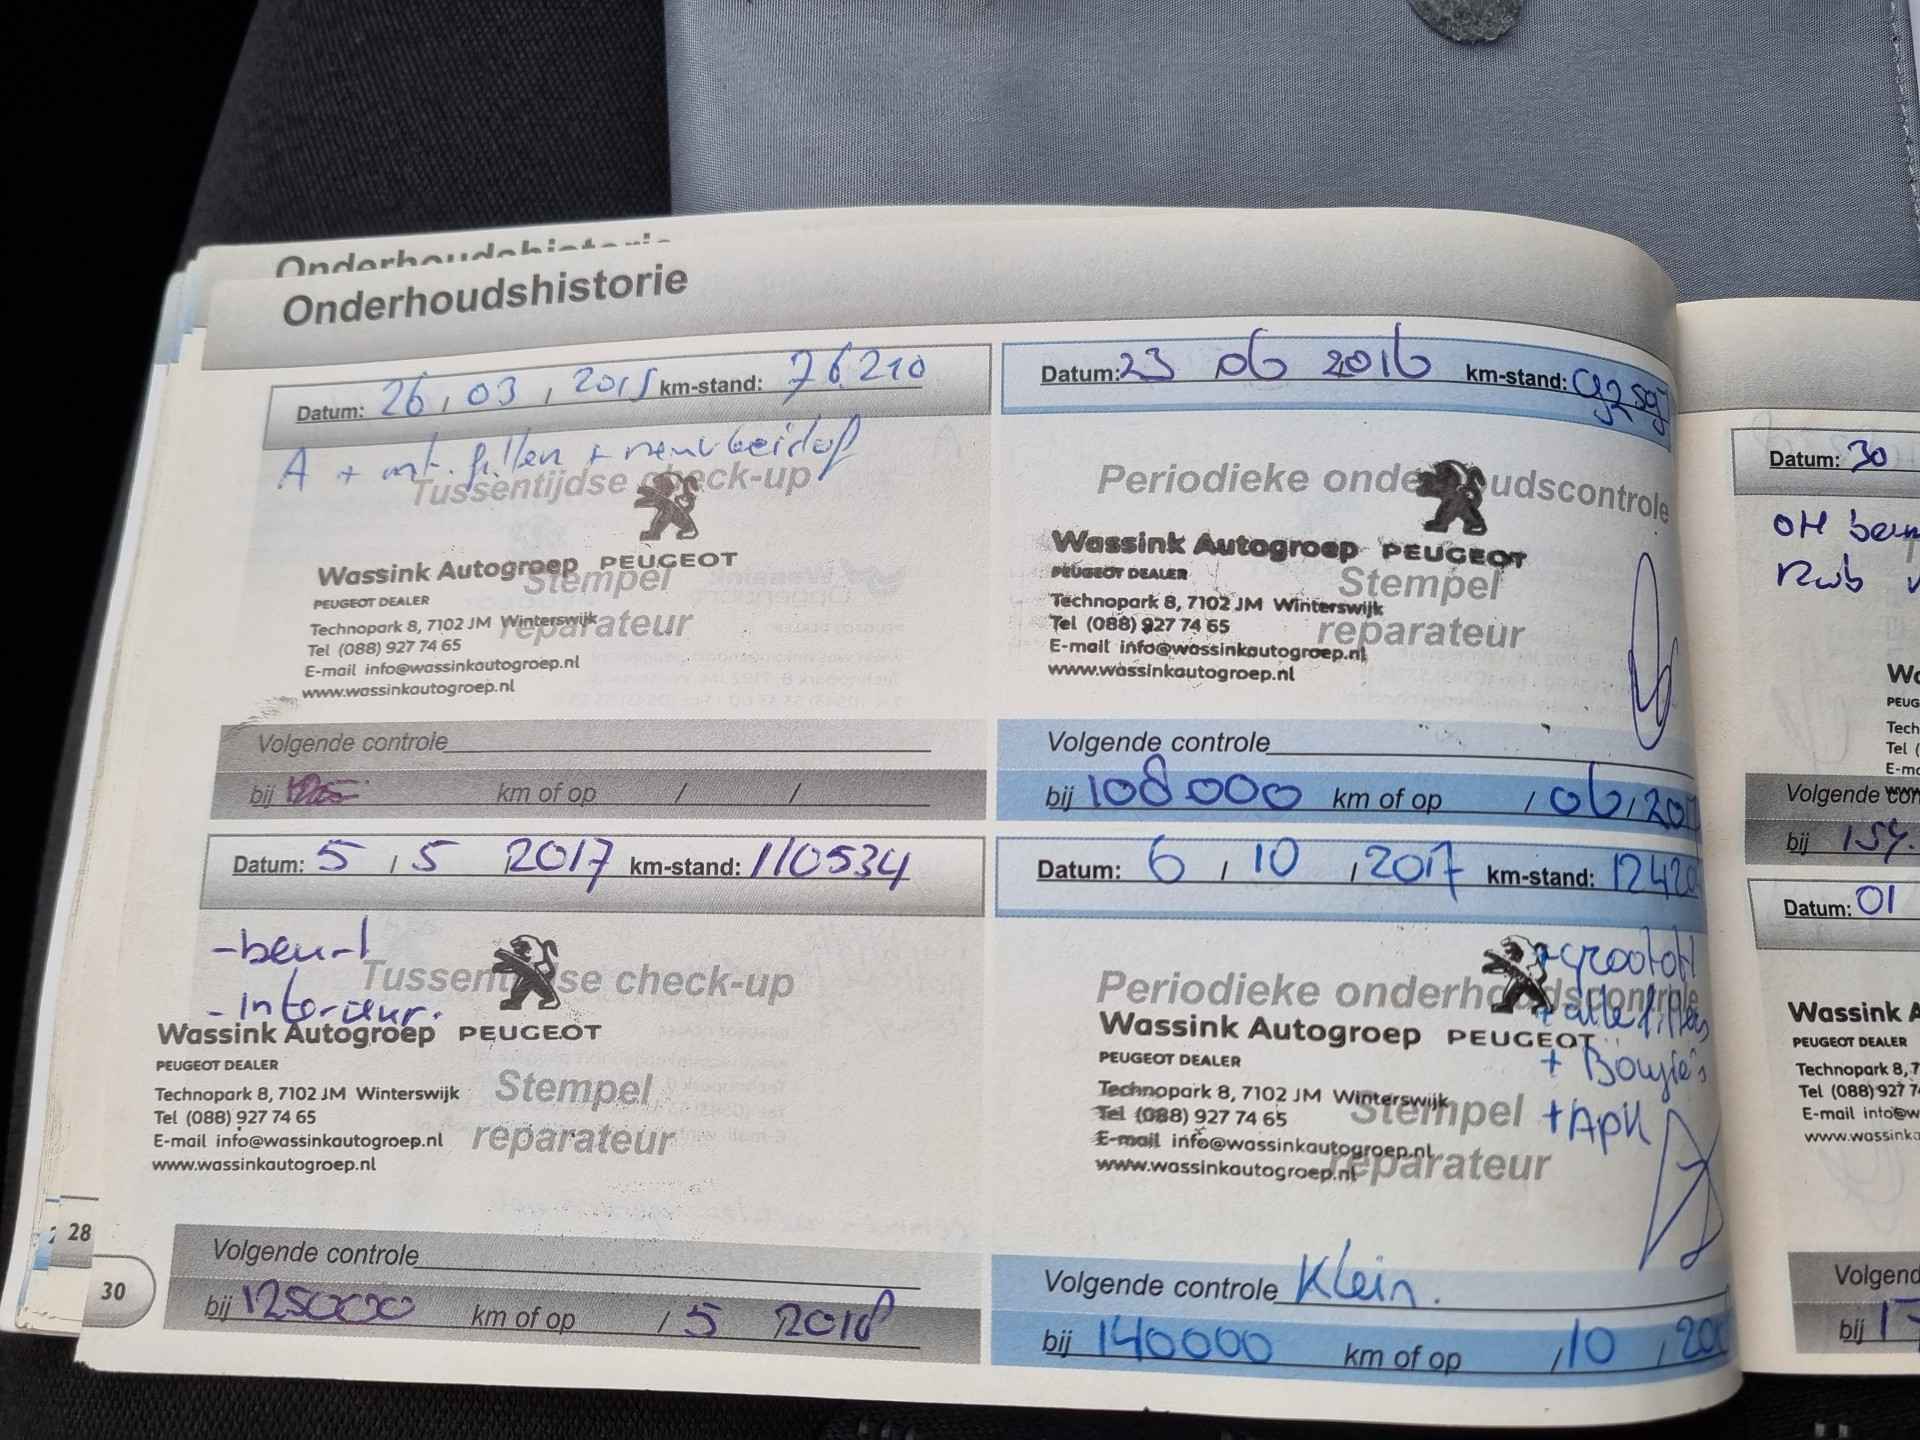 Onderhoudshistorie
Onderhoudshistorie
Datum: 26 / 03 / 2015 km-stand: 76210
A + int. filter +
Tussentijdse check-up
PEUGEOT
Wassink Autogroep
Stempel
PEUGEOT DEALER
reparateur
Technopark 8, 7102 JM Winterswijk
Tel (088) 927 74 65
E-mail info@wassinkautogroep.nl
www.wassinkautogroep.nl
Volgende controle
bij km of op / /
Datum: 23 06 2016 km-stand:
Periodieke onderhoudscontrole
Wassink Autogroep PEUGEOT
PEUGEOT DEALER
Stempel
Technopark 8, 7102 JM Winterswijk
Tel (088) 927 74 65
reparateur
E-mail info@wassinkautogroep.nl
www.wassinkautogroep.nl
Volgende controle
bij 108000 km of op / 06 / 201
Datum: 5 / 5 2017 km-stand: 110534
- beurt
Tussentijdse check-up
- interieur.
Wassink Autogroep PEUGEOT
PEUGEOT DEALER
Stempel
Technopark 8, 7102 JM Winterswijk
Tel (088) 927 74 65
reparateur
E-mail info@wassinkautogroep.nl
www.wassinkautogroep.nl
Volgende controle
bij 125000 km of op / 5 2018
Datum: 6 / 10 / 2017 km-stand: 12420
+ groot OH
Periodieke onderhoudscontrole
+ alle filters
Wassink Autogroep PEUGEOT
+ Bougies
PEUGEOT DEALER
Technopark 8, 7102 JM Winterswijk
Stempel
+ Apk
Tel (088) 927 74 65
E-mail info@wassinkautogroep.nl
reparateur
www.wassinkautogroep.nl
Volgende controle Klein.
bij 140000 km of op / 10 / 20
28
30
Datum: 30
OH
Rwb
PEUG
Tech
Tel (
E-ma
Volgende con
bij 154.
Datum: 01
Wassink A
PEUGEOT DEALER
Technopark 8, 7
Tel (088) 927 7
E-mail info@w
www.wassinka
Volgend
bij 17